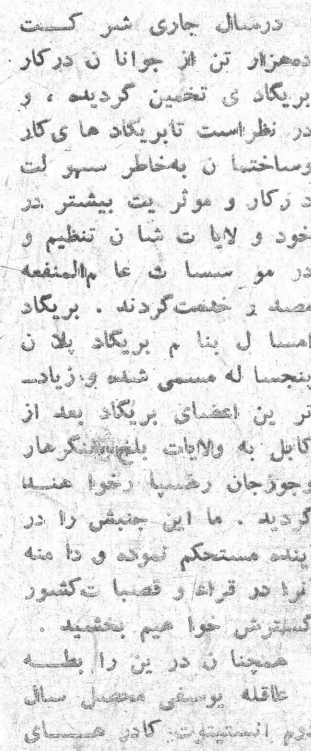 درسال جاری شر کت
ده‌هزار تن از جوانا ن درکار
بریگاد ی تخمین گردیده ، و
در نظر است تابریگاد ها ی کار
وساختما ن به‌خاطر سهو لت
د رکار و موثر یت بیشتر در
خود و لایا ت شا ن تنظیم و
در مو سسا ت عا م‌المنفعه
مصد ر خدمت‌گردند . بریگاد
امسا ل بنا م بریگاد پلا ن
پنجسا له مسمی شده و زیاد
تر ین اعضای بریگاد بعد از
کابل به ولایات بلخ،ننگرهار
وجوزجان رهسپا رخوا هند
گردید . ما این جنبش را در
ینده مستحکم نموده و دا منه
نرا در قراء و قصبا ت‌کشور
گسترش خوا هیم بخشید .
همچنا ن در ین را بطه
عاقله یوسفی محصل سال
دوم انستیتوت کادر هــای